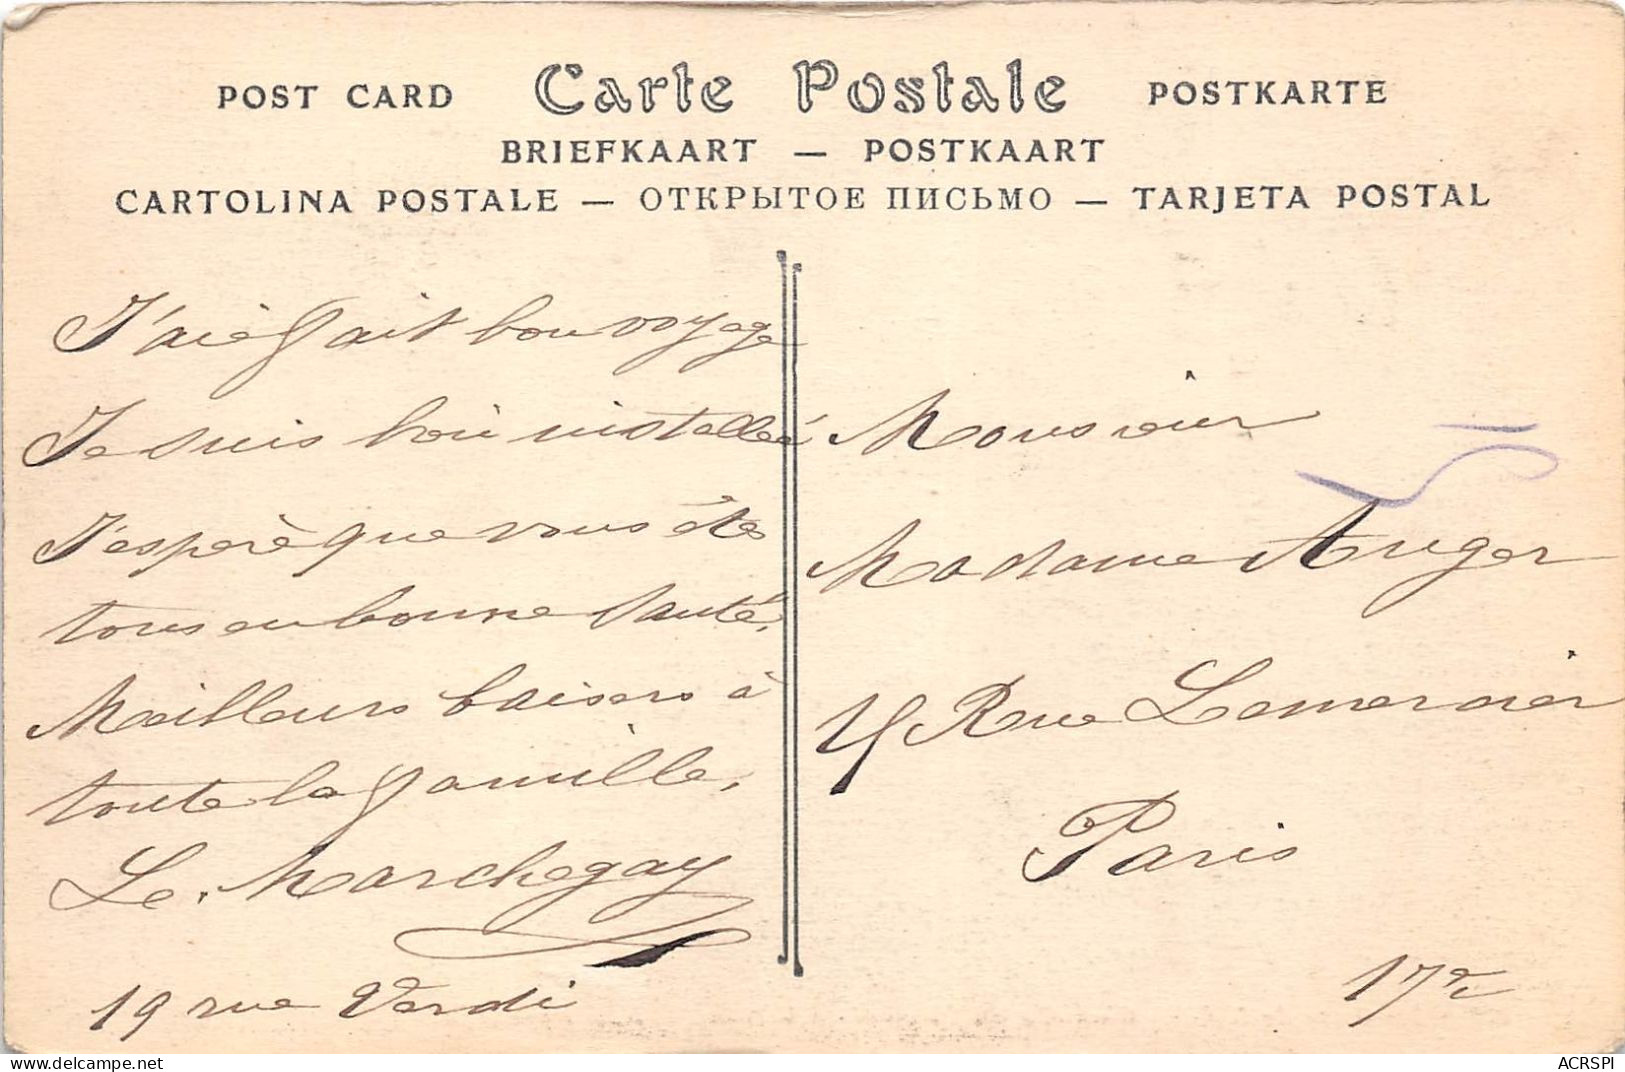 POST CARD Carte Postale POSTKARTE
BRIEFKAART — POSTKAART
CARTOLINA POSTALE — ОТКРЫТОЕ ПИСЬМО — TARJETA POSTAL
J'ai fait bon voyage
Je suis bien installée
J'espère que vous êtes
tous en bonne santé.
Meilleurs baisers à
toute la famille.
Le. Marchegay
19 rue Verdi
Monsieur
Madame Auger
Rue Lemercier
Paris
17e
delcampe.net
ACRSPI